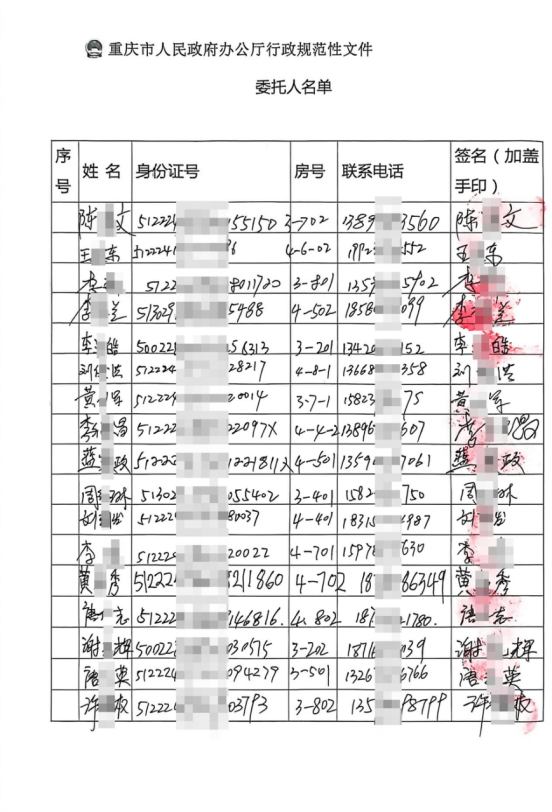 重庆市人民政府办公厅行政规范性文件
委托人名单
序号 姓名 身份证号 房号 联系电话 签名（加盖手印）
陈 文 51222 55150 3-702 1389 3560 陈 文
王 东 512224 4-6-02 552 王 东
李 5122 8011720 3-801 1359 5902 李
李 兰 513029 5488 4-502 1858 099 李 兰
李 皓 50022 56313 3-201 13420 152 李 皓
刘 洪 512224 28217 4-8-1 13668 358 刘 洪
黄 军 512224 20014 3-7-1 15823 75 黄 军
李 51222 22097X 4-4-2 13896 607
蓝 政 51222 4-501 1359 7061 蓝 政
周 林 51302 055402 3-401 1582 750 周 林
刘 51222 80037 4-401 1831 4987 刘
李 51222 20022 4-701 1597 630 李
黄 秀 51222 3211860 4-702 187 86349 黄 秀
唐 志 51222 146816. 4-802 187 1780. 唐 志
谢 辉 50022 030515 3-202 18716 039 谢 辉
唐 英 512224 094279 3-501 1326 6766 唐 英
许 权 51222 03793 3-802 135 98799 许 权